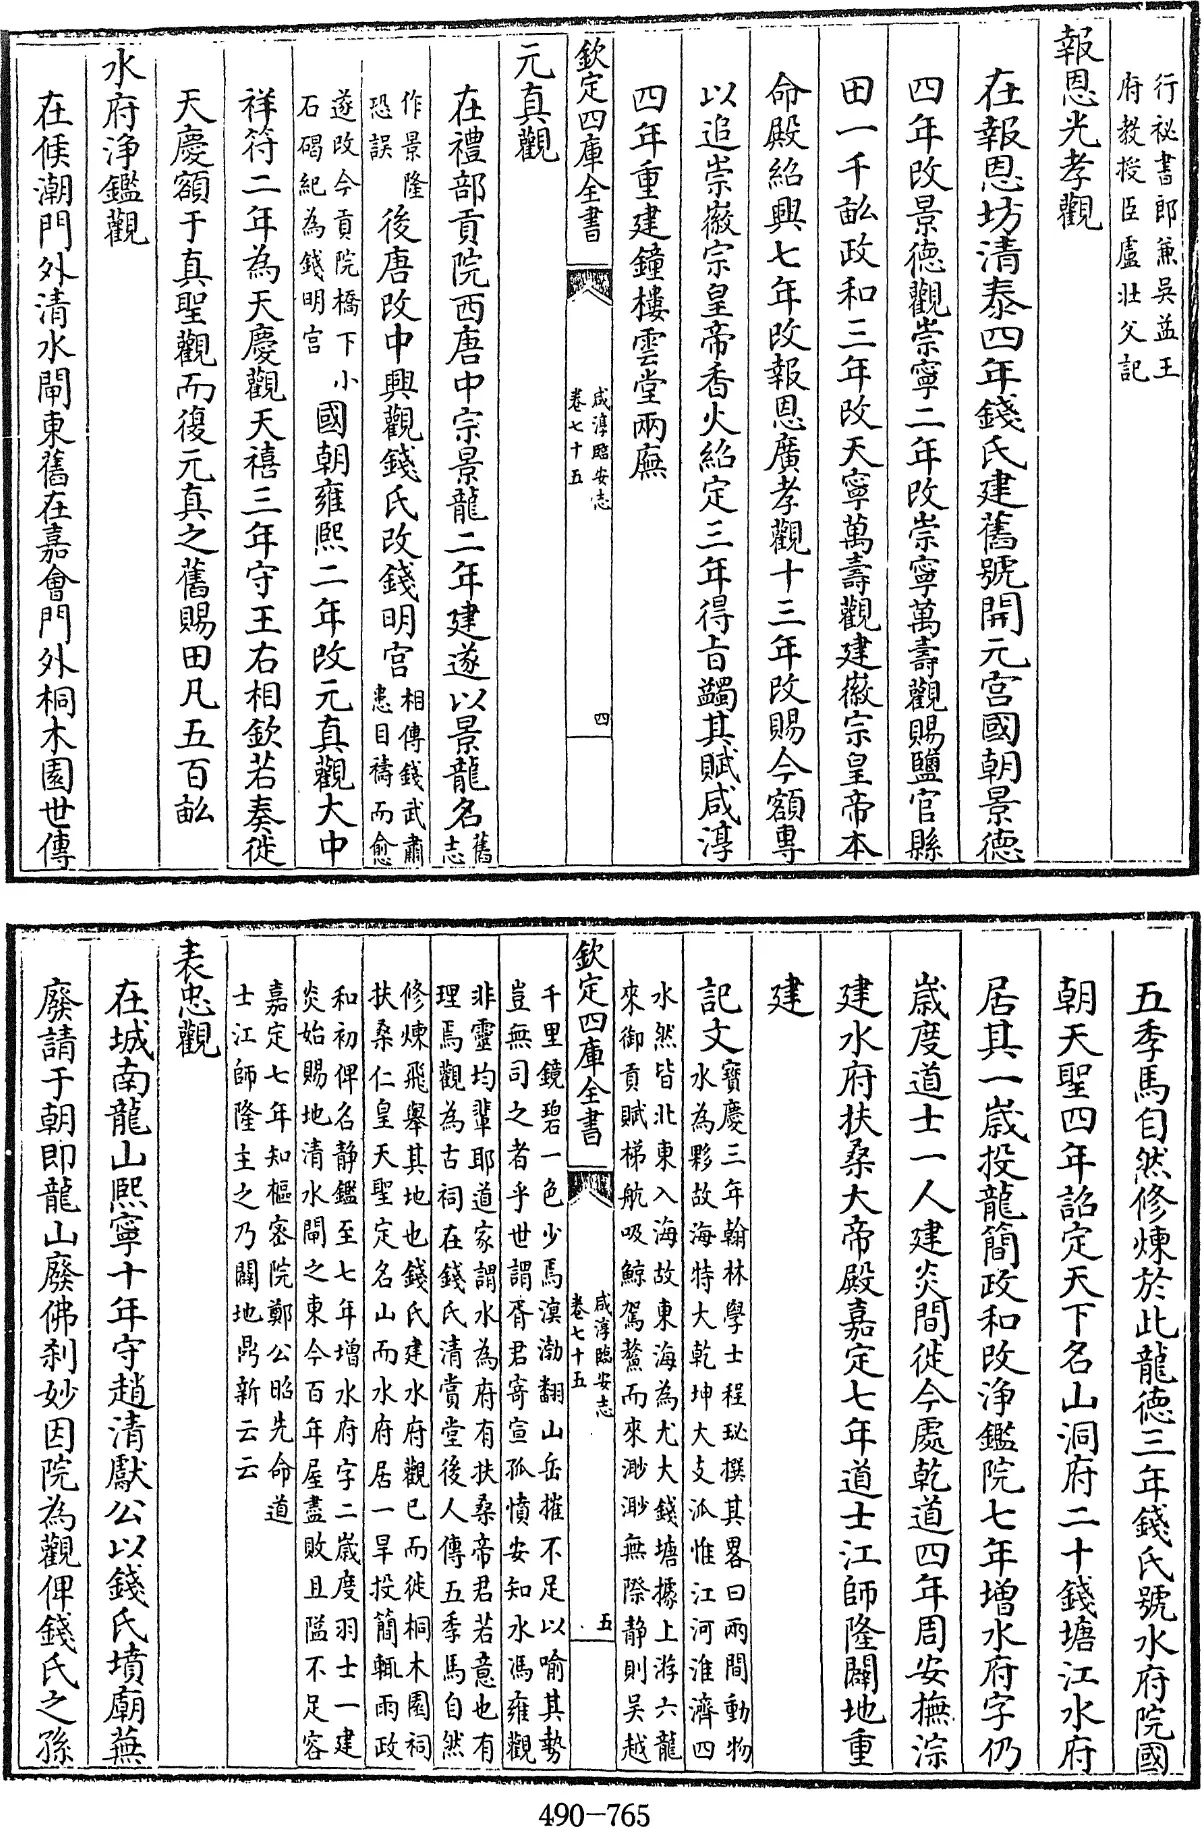 行祕書郎兼吳益王
府教授臣盧壯父記
報恩光孝觀
在報恩坊清泰四年錢氏建舊號開元宫國朝景德
四年改景德觀崇寧二年改崇寧萬壽觀賜鹽官縣
田一千畝政和三年改天寧萬壽觀建徽宗皇帝本
命殿紹興七年改報恩廣孝觀十三年改賜今額專
以追崇徽宗皇帝香火紹定三年得旨蠲其賦咸淳
四年重建鐘樓雲堂兩廡
欽定四庫全書
咸淳臨安志
卷七十五
四
元真觀
在禮部貢院西唐中宗景龍二年建遂以景龍名舊志
作景隆恐誤後唐改中興觀錢氏改錢明宫相傳錢武肅患目禱而愈
遂改今貢院橋下小石碣紀為錢明宫國朝雍熙二年改元真觀大中
祥符二年為天慶觀天禧三年守王右相欽若奏徙
天慶額于真聖觀而復元真之舊賜田凡五百畝
水府淨鑑觀
在候潮門外清水閘東舊在嘉會門外桐木園世傳
五季馬自然修煉於此龍德三年錢氏號水府院國
朝天聖四年詔定天下名山洞府二十錢塘江水府
居其一歲投龍簡政和改淨鑑院七年增水府字仍
歲度道士一人建炎間徙今處乾道四年周安撫淙
建水府扶桑大帝殿嘉定七年道士江師隆闢地重
建
記文寶慶三年翰林學士程珌撰其畧曰兩間動物
水為夥故海特大乾坤大支派惟江河淮濟四
水然皆北東入海故東海為尤大錢塘據上游六龍
來御貢賦梯航吸鯨駕鰲而來渺渺無際静則吳越
欽定四庫全書
咸淳臨安志
卷七十五
五
千里鏡碧一色少焉溟渤翻山岳摧不足以喻其勢
豈無司之者乎世謂胥君寄宣孤憤安知水馮雍觀
非靈均輩耶道家謂水為府有扶桑帝君若意也有
理焉觀為古祠在錢氏清賞堂後人傳五季馬自然
修煉飛舉其地也錢氏建水府觀已而徙桐木園祠
扶桑仁皇天聖定名山而水府居一旱投簡輒雨政
和初俾名静鑑至七年增水府字二歲度羽士一建
炎始賜地清水閘之東今百年屋盡敗且隘不足容
嘉定七年知樞密院鄭公昭先命道
士江師隆主之乃闢地鼎新云云
表忠觀
在城南龍山熙寧十年守趙清獻公以錢氏墳廟蕪
廢請于朝即龍山廢佛刹妙因院為觀俾錢氏之孫
490-765